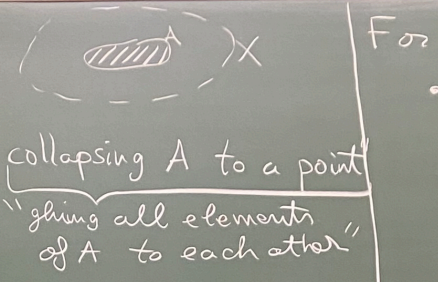 A
X
For
collapsing A to a point"
"gluing all elements
of A to each other"